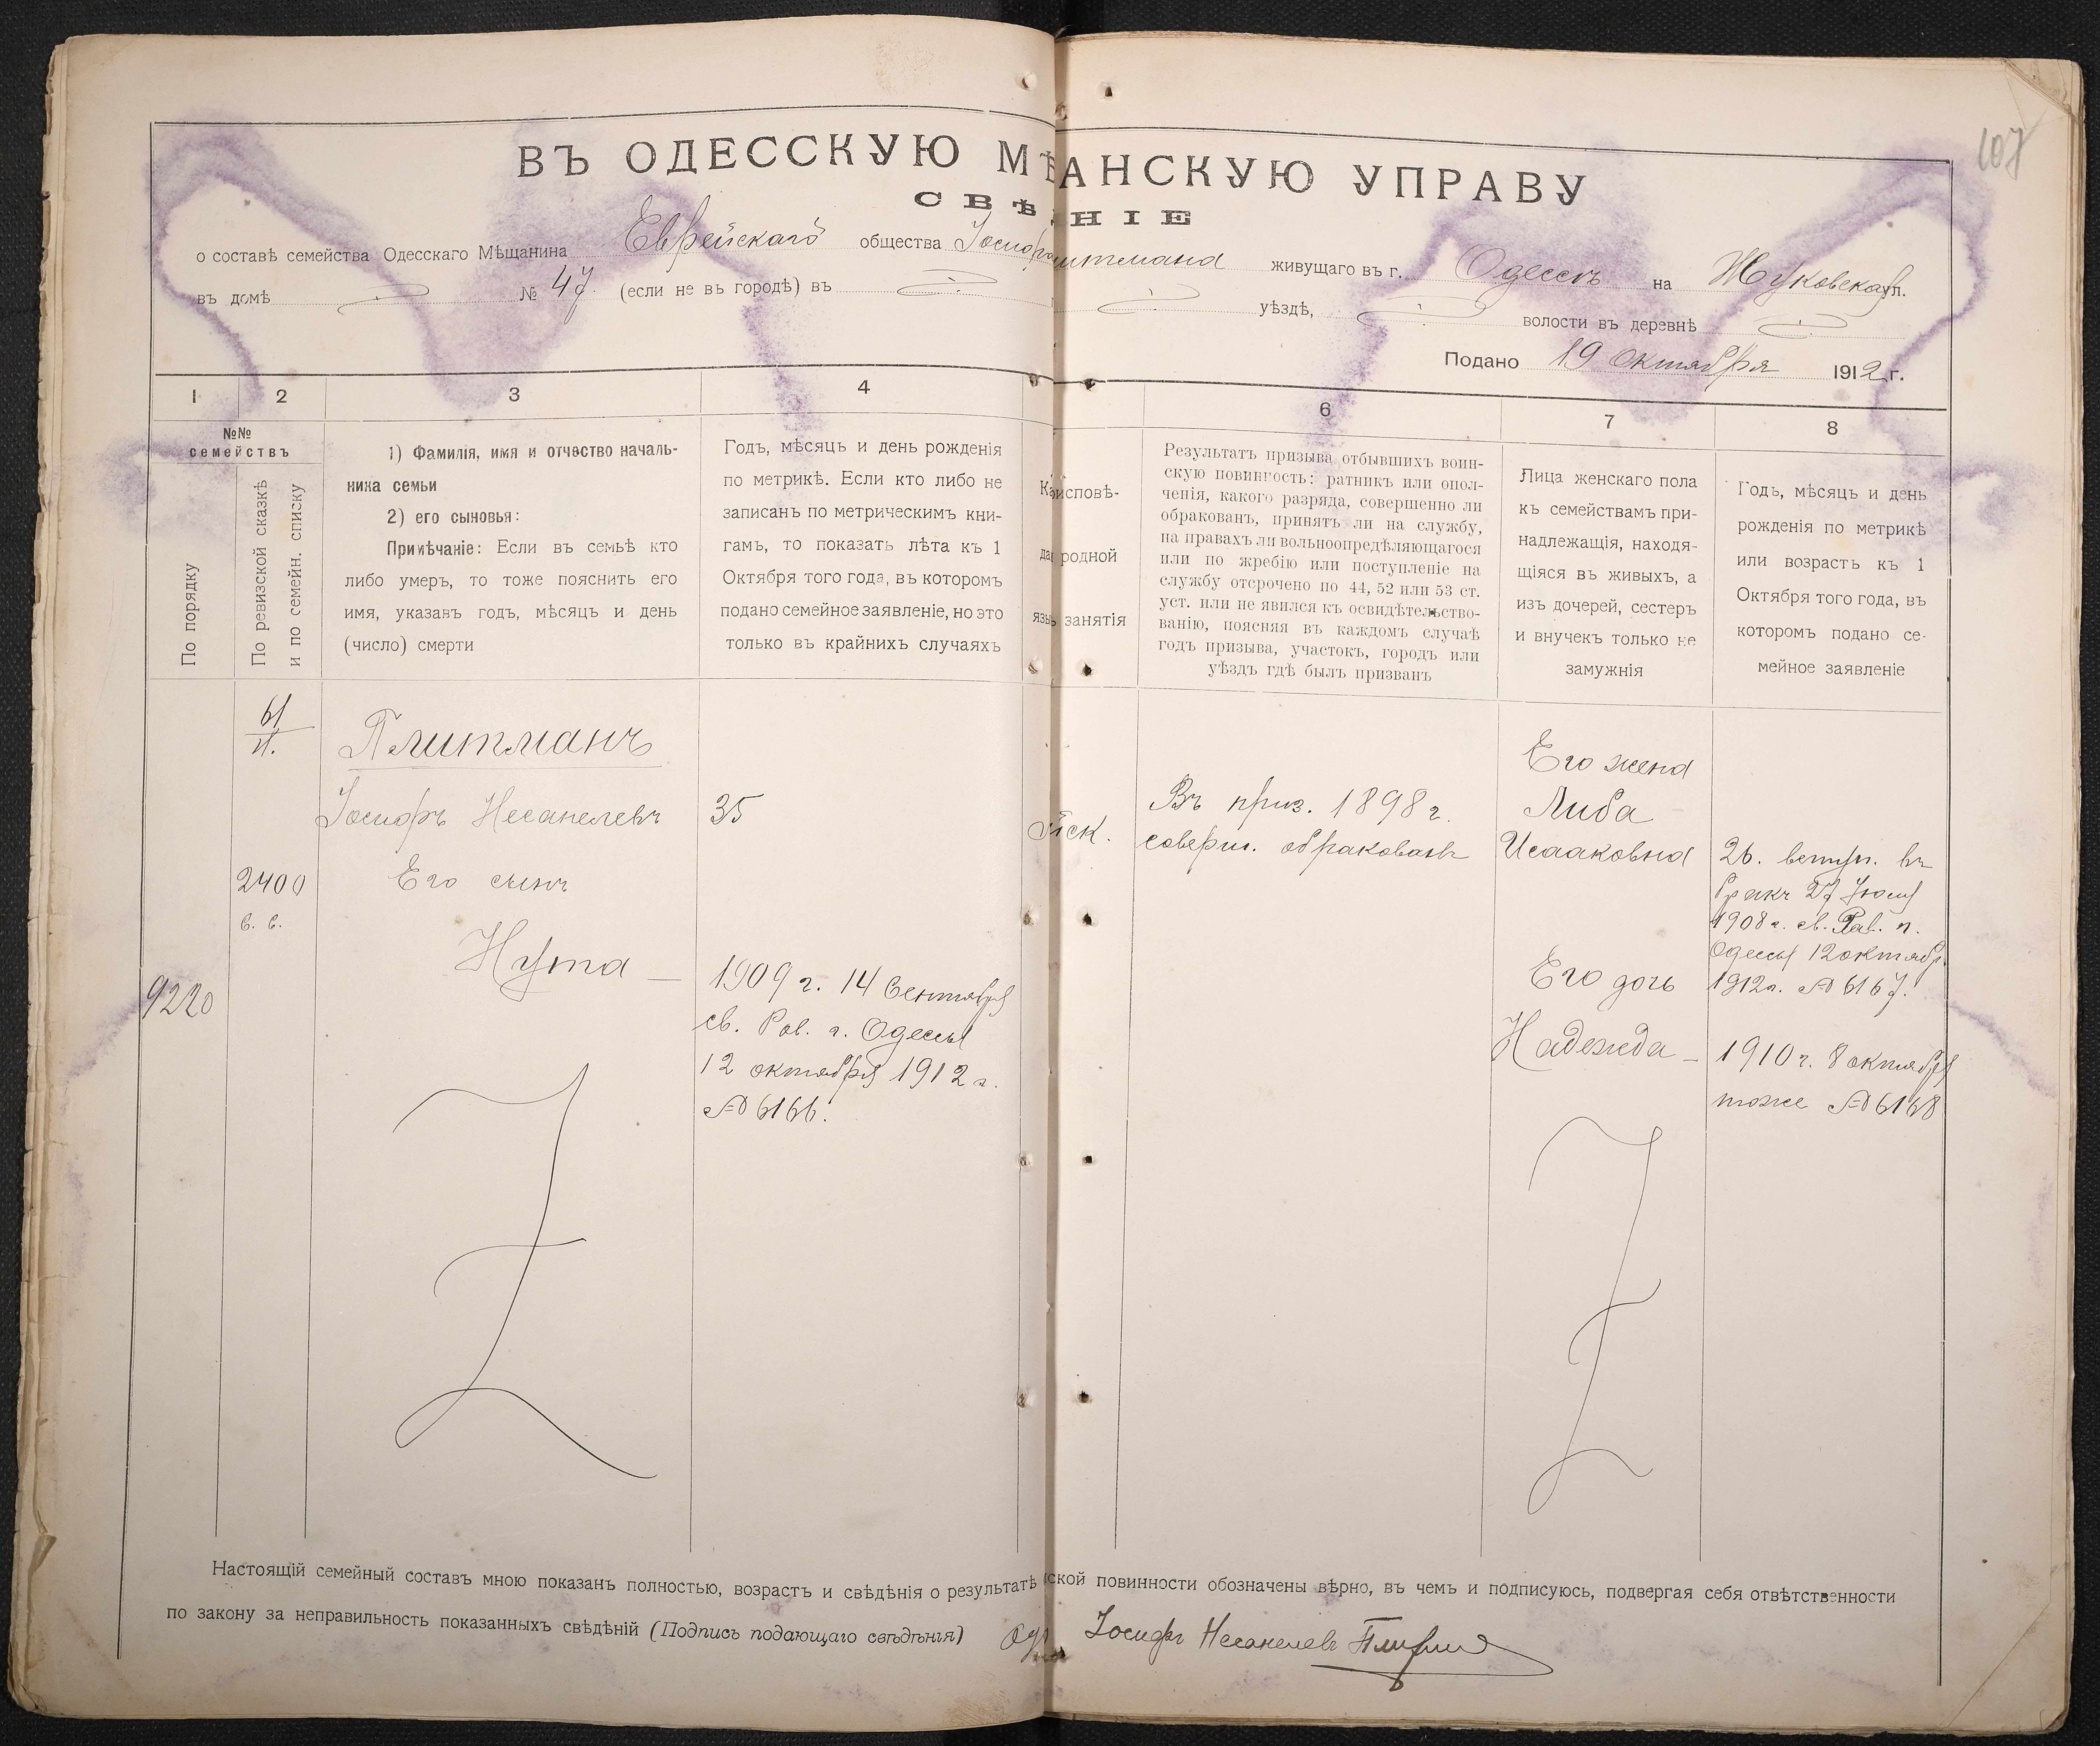 107
ВЪ ОДЕССКУЮ МѢ АНСКУЮ УПРАВУ
СВѢ НІЕ
о составѣ семейства Одесскаго Мѣщанина Еврейскаго общества Іосиф итмана живущаго въ г. Одессѣ на Жуковской ул.
въ домѣ № 47. (если не въ городѣ) въ уѣздѣ, волости въ деревнѣ
Подано 19 Октября 1912 г.
1 2 3 4 6 7 8
№№
семействъ
По порядку
По ревизской сказкѣ
и по семейн. списку
1) Фамилія, имя и отчество началь-
ника семьи
2) его сыновья:
Примѣчаніе: Если въ семьѣ кто
либо умеръ, то тоже пояснить его
имя, указавъ годъ, мѣсяцъ и день
(число) смерти
Годъ, мѣсяцъ и день рожденія
по метрикѣ. Если кто либо не
записанъ по метрическимъ кни-
гамъ, то показать лѣта къ 1
Октября того года, въ которомъ
подано семейное заявленіе, но это
только въ крайнихъ случаяхъ
Ка исповѣ-
да родной
язы занятія
Результатъ призыва отбывшихъ воин-
скую повинность: ратникъ или опол-
ченія, какого разряда, совершенно ли
обракованъ, принятъ ли на службу,
на правахъ ли вольноопредѣляющагося
или по жребію или поступленіе на
службу отсрочено по 44, 52 или 53 ст.
уст. или не явился къ освидѣтельство-
ванію, поясняя въ каждомъ случаѣ
годъ призыва, участокъ, городъ или
уѣздъ гдѣ былъ призванъ
Лица женскаго пола
къ семействамъ при-
надлежащія, находя-
щіяся въ живыхъ, а
изъ дочерей, сестеръ
и внучекъ только не
замужнія
Годъ, мѣсяцъ и день
рожденія по метрикѣ
или возрастъ къ 1
Октября того года, въ
которомъ подано се-
мейное заявленіе
61
П.
Плитманъ
Іосифъ Несанелевъ 35
2400
с. с.
Его сынъ
Нута —
9220
1909 г. 14 Сентября
св. Рав. г. Одессы
12 октября 1912 г.
№ 6166.
йск.
Въ приз. 1898 г.
соверш. обракованъ
Его жена
Либа
Исааковна
26. вступ. въ
бракъ 27 Іюля
1908 г. св. Рав. г.
Одессы 12 октябр.
1912 г. № 6167.
Его дочь
Надежда —
1910 г. 8 октября
тоже № 6168
Настоящій семейный составъ мною показанъ полностью, возрастъ и свѣдѣнія о результатѣ ской повинности обозначены вѣрно, въ чемъ и подписуюсь, подвергая себя отвѣтственности
по закону за неправильность показанныхъ свѣдѣній (Подпись подающаго свѣдѣнія) Іосифъ Несанелевъ Плитман